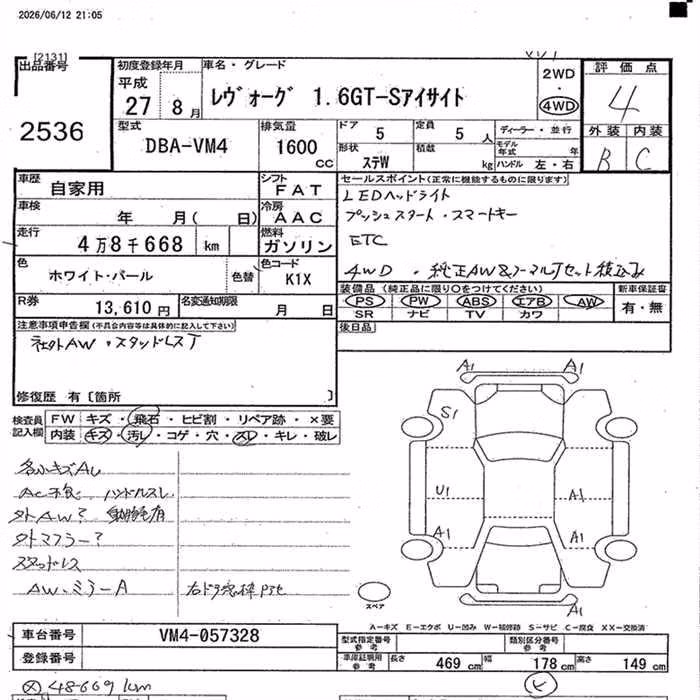 2026/06/12 21:05
[2131]
出品番号
2536
初度登録年月
平成
27 8月
車名・グレード
レヴォーグ 1.6GT-Sアイサイト
2WD
4WD
評価点
4
外装 内装
B C
型式
DBA-VM4
排気量
1600 CC
ドア 5
定員 5 人
形状 ステW
積載 kg
ディーラー・並行
モデル年式 年
ハンドル 左・右
車歴 自家用
シフト FAT
車検 年 月( 日)
冷房 AAC
走行 4万8千668 km
燃料 ガソリン
色 ホワイト・パール
色替
色コード K1X
R券 13,610円
名変通知期限 月 日
セールスポイント(正常に機能するものに限ります)
LEDヘッドライト
プッシュスタート・スマートキー
ETC
4WD ・純正AW&ノーマルTセット積込み
装備品 (純正品に限り○をつけてください)
PS PW ABS エアB AW
SR ナビ TV カワ
新車保証書
有・無
後日品
注意事項申告欄(不具合内容等は具体的に記入して下さい)
社外AW・スタッドレスT
修復歴 有〔箇所 〕
検査員記入欄
FW キズ・飛石・ヒビ割・リペア跡・×要
内装 キズ・汚レ・コゲ・穴・スレ・キレ・破レ
各小キズAU
AC不良 ハンドルスレ
外AW?
外マフラー?
スタッドレス
AW・ミラーA
A1 A1
S1
U1 A1
A1 A1
A1
スペア
A-キズ E-エクボ U-凹み W-補修跡 S-サビ C-腐食 XX-交換済
車台番号 VM4-057328
登録番号
型式指定番号 参考
類別区分番号 参考
車庫証明用 参考
長さ 469 cm 幅 178 cm 高さ 149 cm
48669km